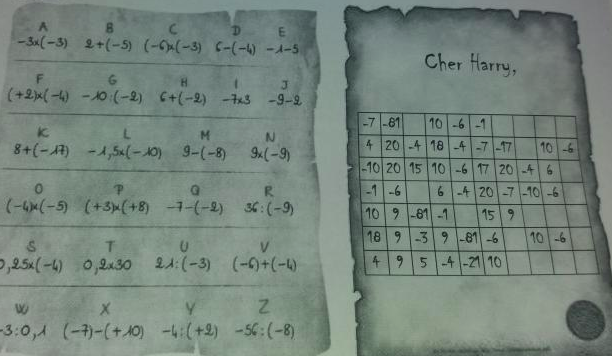 A B C D E
-3x(-3) 2+(-5) (-6)x(-3) 6-(-4) -1-5
F G H I J
(+2)x(-4) -10:(-2) 6+(-2) -7x3 -9-2
K L M N
8+(-17) -1,5x(-10) 9-(-8) 9x(-9)
O P Q R
(-4)x(-5) (+3)x(+8) -7-(-2) 36:(-9)
S T U V
0,25x(-4) 0,2x30 21:(-3) (-6)+(-4)
W X Y Z
-3:0,1 (-7)-(+10) -4:(+2) -56:(-8)
Cher Harry,
-7 -81 10 -6 -1
4 20 -4 18 -4 -7 -17 10 -6
-10 20 15 10 -6 17 20 -4 6
-1 -6 6 -4 20 -7 -10 -6
10 9 -81 -1 15 9
18 9 -3 9 -81 -6 10 -6
4 9 5 -4 -21 10